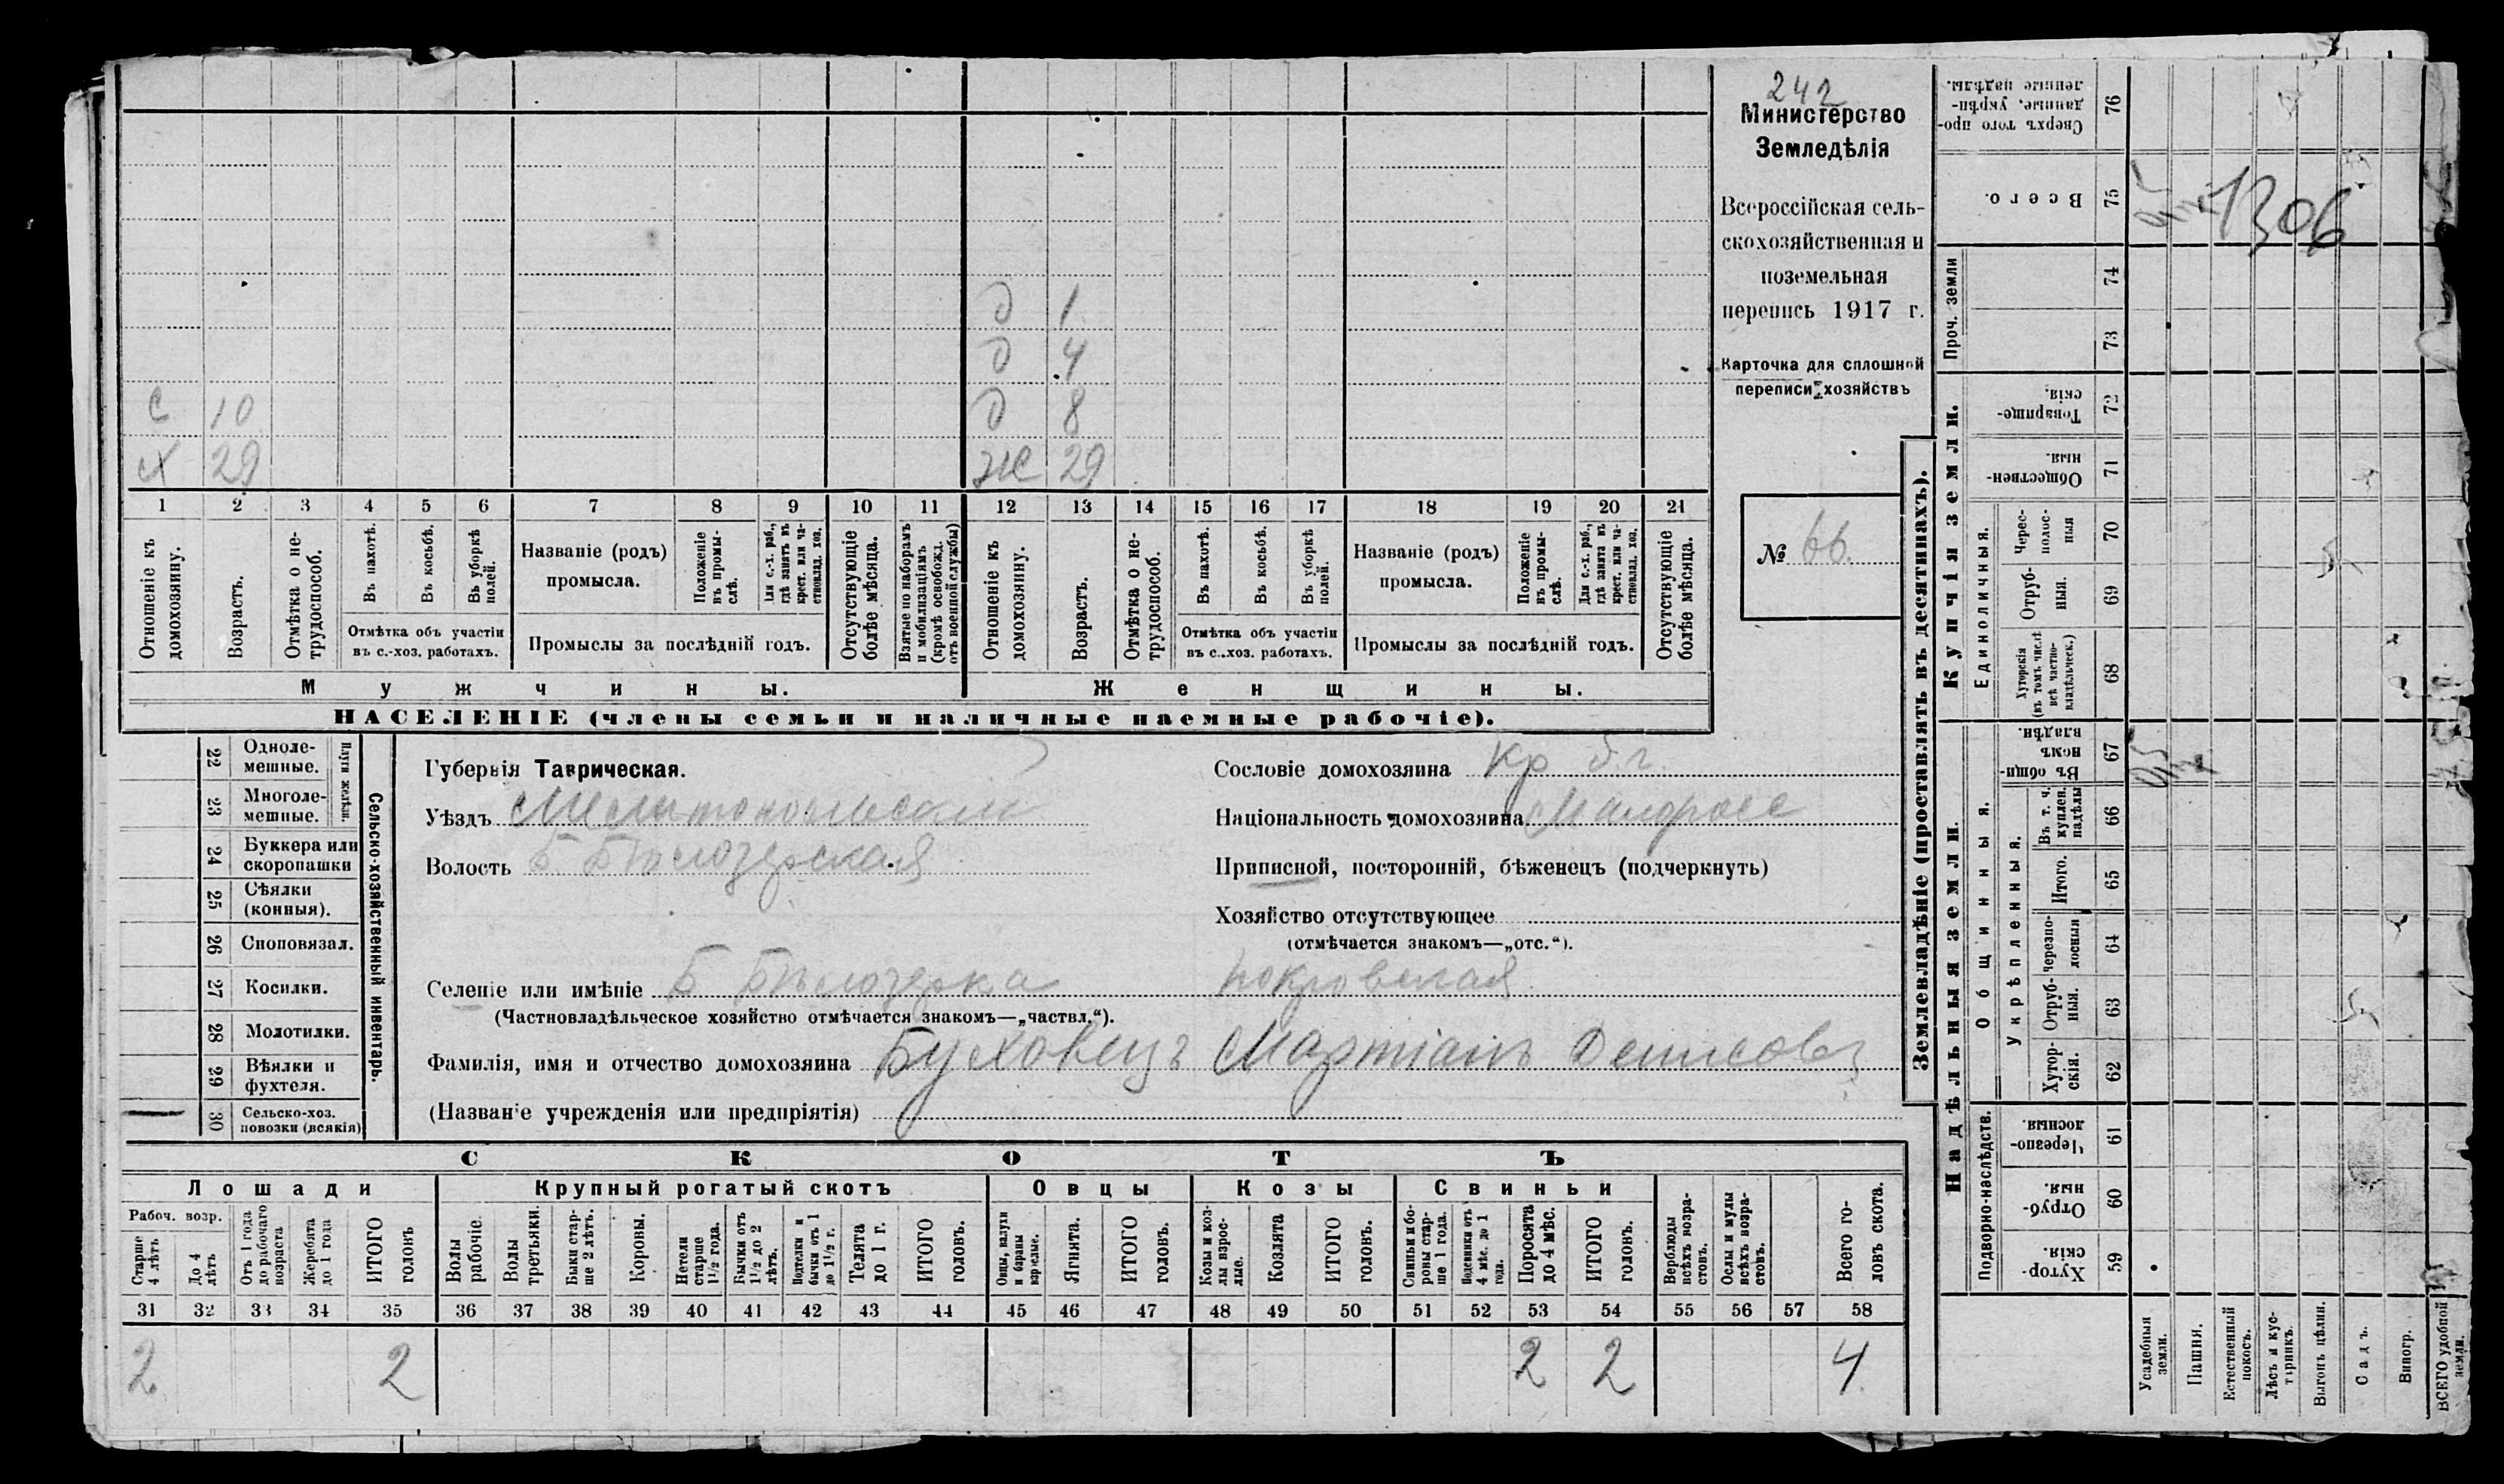 242
Министерство
Земледѣлія
Всероссійская сель-
скохозяйственная и
поземельная
перепись 1917 г.
Карточка для сплошной
переписи хозяйствъ
№ 66.
д 1
д 4
с 10 д 8
х 29 ж 29
1 2 3 4 5 6 7 8 9 10 11 12 13 14 15 16 17 18 19 20 21
Отношеніе къ домохозяину.
Возрастъ.
Отмѣтка о не-трудоспособ.
Въ пахотѣ.
Въ косьбѣ.
Въ уборкѣ полей.
Отмѣтка объ участіи
въ с.-хоз. работахъ.
Названіе (родъ)
промысла.
Положеніе въ промы-слѣ.
Для с.-х. раб., гдѣ занятъ въ крест. или ча-стновлад. хоз.
Промыслы за послѣдній годъ.
Отсутствующіе болѣе мѣсяца.
Взятые по наборамъ и мобилизаціямъ (кромѣ освобожд. отъ военной службы)
Отношеніе къ домохозяину.
Возрастъ.
Отмѣтка о не-трудоспособ.
Въ пахотѣ.
Въ косьбѣ.
Въ уборкѣ полей.
Отмѣтка объ участіи
въ с.-хоз. работахъ.
Названіе (родъ)
промысла.
Положеніе въ промы-слѣ.
Для с.-х. раб., гдѣ занята въ крест. или ча-стновлад. хоз.
Промыслы за послѣдній годъ.
Отсутствующіе болѣе мѣсяца.
Мужчины. Женщины.
НАСЕЛЕНІЕ (члены семьи и наличные наемные рабочіе).
Сельско-хозяйственный инвентарь.
Плуги желѣзн.
22 Одноле-мешные.
23 Многоле-мешные.
24 Буккера или скоропашки
25 Сѣялки (конныя).
26 Сноповязал.
27 Косилки.
28 Молотилки.
29 Вѣялки и фухтеля.
30 Сельско-хоз. повозки (всякія)
Губернія Таврическая.
Уѣздъ Мелитопольский
Волость Б Бѣлозерская
Сословіе домохозяина кр б.г.
Національность домохозяина Малоросс
Приписной, посторонній, бѣженецъ (подчеркнуть)
Хозяйство отсутствующее
(отмѣчается знакомъ—„отс.“).
Селеніе или имѣніе Б Бѣлозерка покровская
(Частновладѣльческое хозяйство отмѣчается знакомъ—„частвл.“).
Фамилія, имя и отчество домохозяина Буховецъ Мартіанъ Денисовъ
(Названіе учрежденія или предпріятія)
СКОТЪ
Лошади Крупный рогатый скотъ Овцы Козы Свиньи
Рабоч. возр.
Старше 4 лѣтъ
До 4 лѣтъ
Отъ 1 года до рабочаго возраста
Жеребята до 1 года
ИТОГО головъ
Волы рабочіе.
Волы третьяки.
Быки стар-ше 2 лѣтъ.
Коровы.
Нетели старше 1½ года.
Бычки отъ 1½ до 2 лѣтъ.
Подтелки и бычки отъ 1 до 1½ г.
Телята до 1 г.
ИТОГО головъ.
Овцы, валухи и бараны взрослые.
Ягнята.
ИТОГО головъ.
Козы и коз-лы взрос-лые.
Козлята
ИТОГО головъ.
Свиньи и бо-ровы стар-ше 1 года.
Подсвинки отъ 4 мѣс. до 1 года.
Поросята до 4 мѣс.
ИТОГО головъ.
Верблюды всѣхъ возра-стовъ.
Ослы и мулы всѣхъ возра-стовъ.
Всего го-ловъ скота.
31 32 33 34 35 36 37 38 39 40 41 42 43 44 45 46 47 48 49 50 51 52 53 54 55 56 57 58
2 2 2 2 4
Землевладѣніе (проставлять въ десятинахъ).
Купчія земли.
Надѣльныя земли.
Проч. земли
Единоличныя.
Общинныя.
Укрѣпленныя.
Подворно-наслѣдств.
76 Сверхъ того про-данные, укрѣп-ленные надѣлы.
75 Всего.
1306
74
73
72 Товарище-скія.
71 Обществен-ныя.
70 Черес-полос-ныя
69 Отруб-ныя.
68 Хуторскія (въ томъ числѣ всѣ частно-владѣльческ.)
67 Въ общин-номъ владѣн.
66 Въ т. ч. куплен. надѣлы
65 Итого.
64 Черезпо-лосныя
63 Отруб-ныя.
62 Хутор-скія.
61 Черезпо-лосныя.
60 Отруб-ныя.
59 Хутор-скія.
Усадебныя земли.
Пашня.
Естественный покосъ.
Лѣсъ и кус-тарникъ.
Выгонъ цѣлин.
Садъ.
Виногр.
ВСЕГО удобной земли.